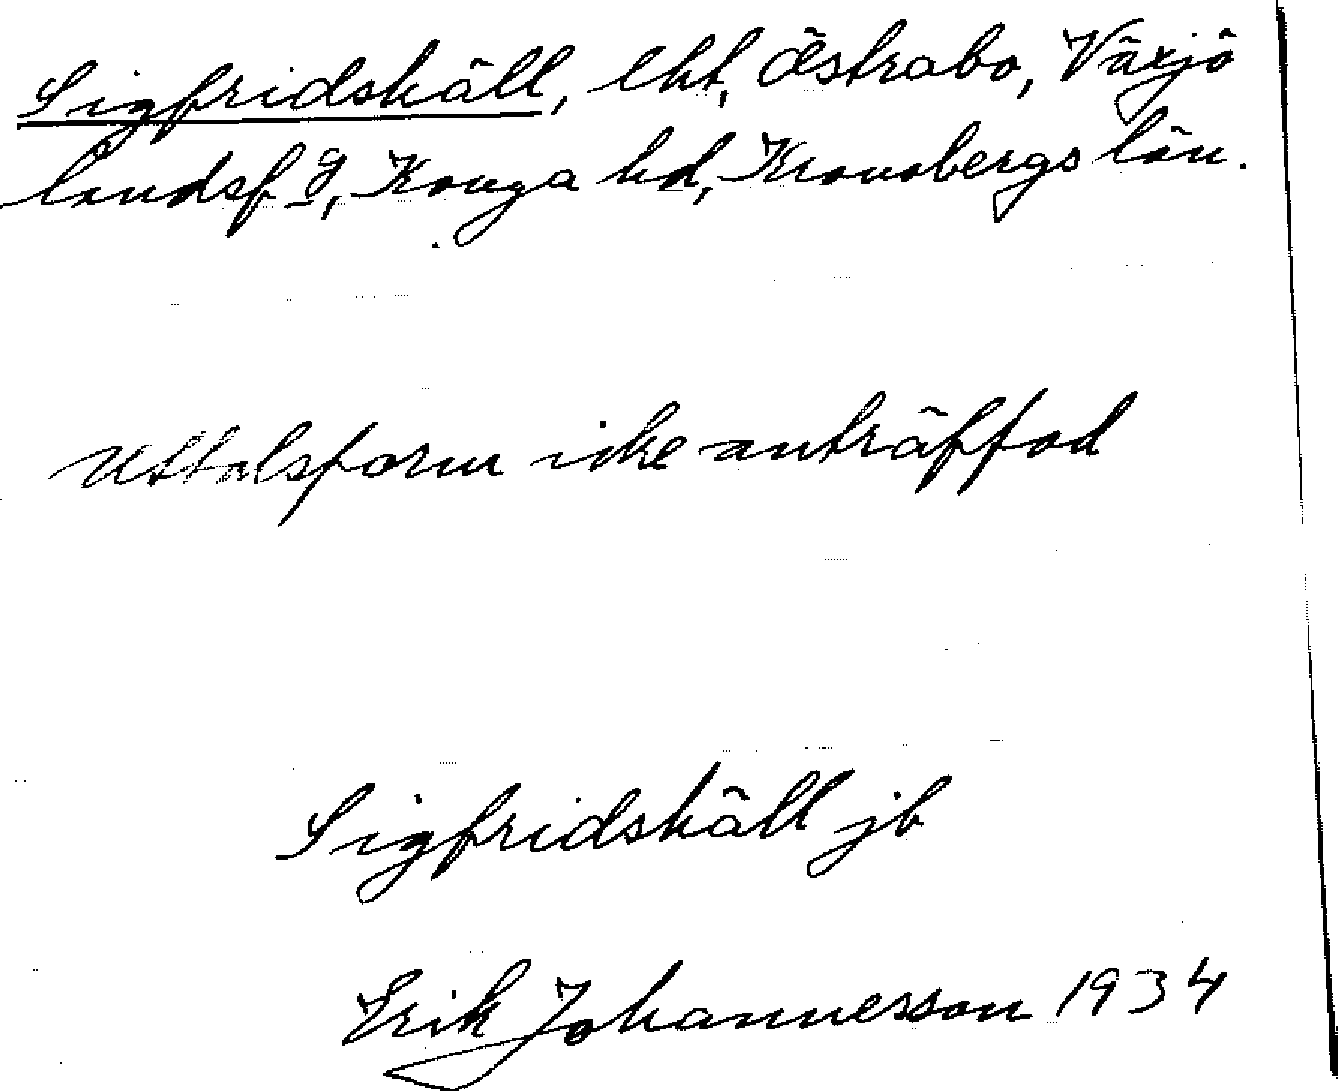 Sigfridskäll, lht, Östrabo, Växjö
landsf g, Konga hd, Kronobergs län.
Uttalsform icke anträffad
Sigfridskäll jb
Erik Johannesson 1934